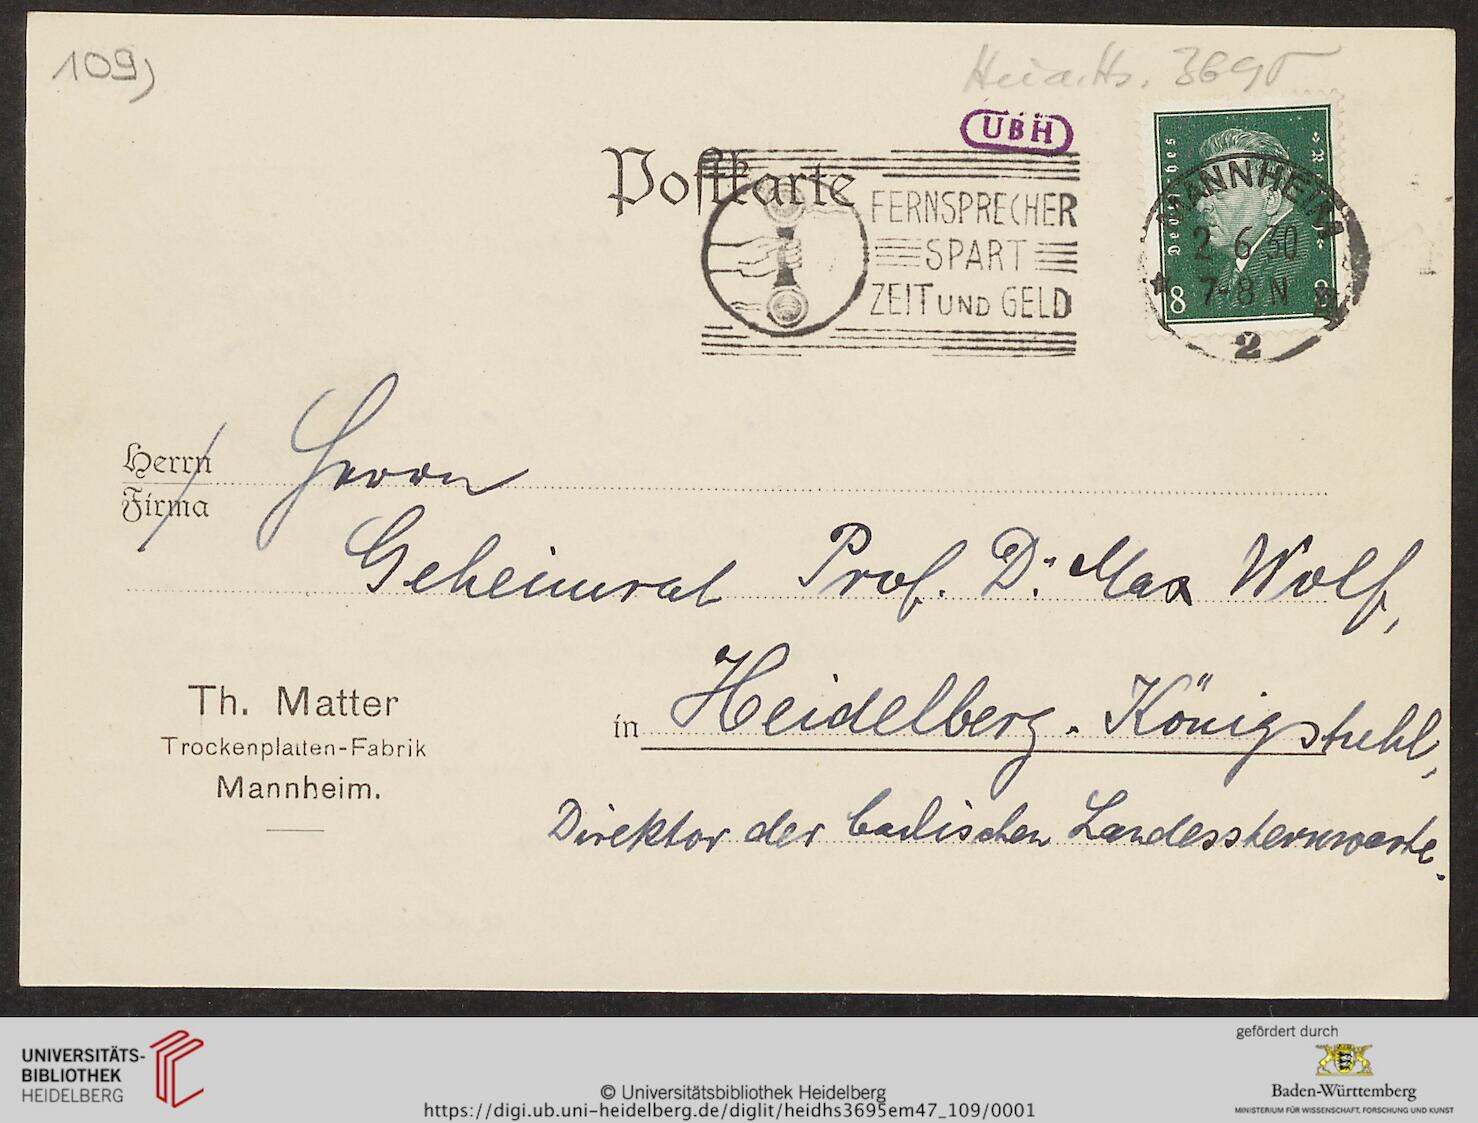 109)
Heid.Hs. 3695
UBH
Postkarte
FERNSPRECHER
SPART
ZEIT UND GELD
Deutsches
MANNHEIM
2 6 30
7-8 N
8
2
Herrn
Firma
Herrn
Geheimrat Prof. Dr. Max Wolf,
Th. Matter
Trockenplatten-Fabrik
Mannheim.
in Heidelberg-Königstuhl,
Direktor der badischen Landessternwarte.
UNIVERSITÄTS-
BIBLIOTHEK
HEIDELBERG
© Universitätsbibliothek Heidelberg
https://digi.ub.uni-heidelberg.de/diglit/heidhs3695em47_109/0001
gefördert durch
Baden-Württemberg
MINISTERIUM FÜR WISSENSCHAFT, FORSCHUNG UND KUNST